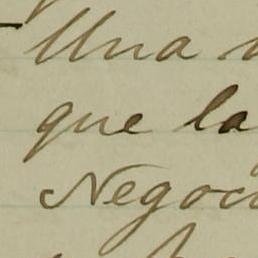 Una
que la
Negoc